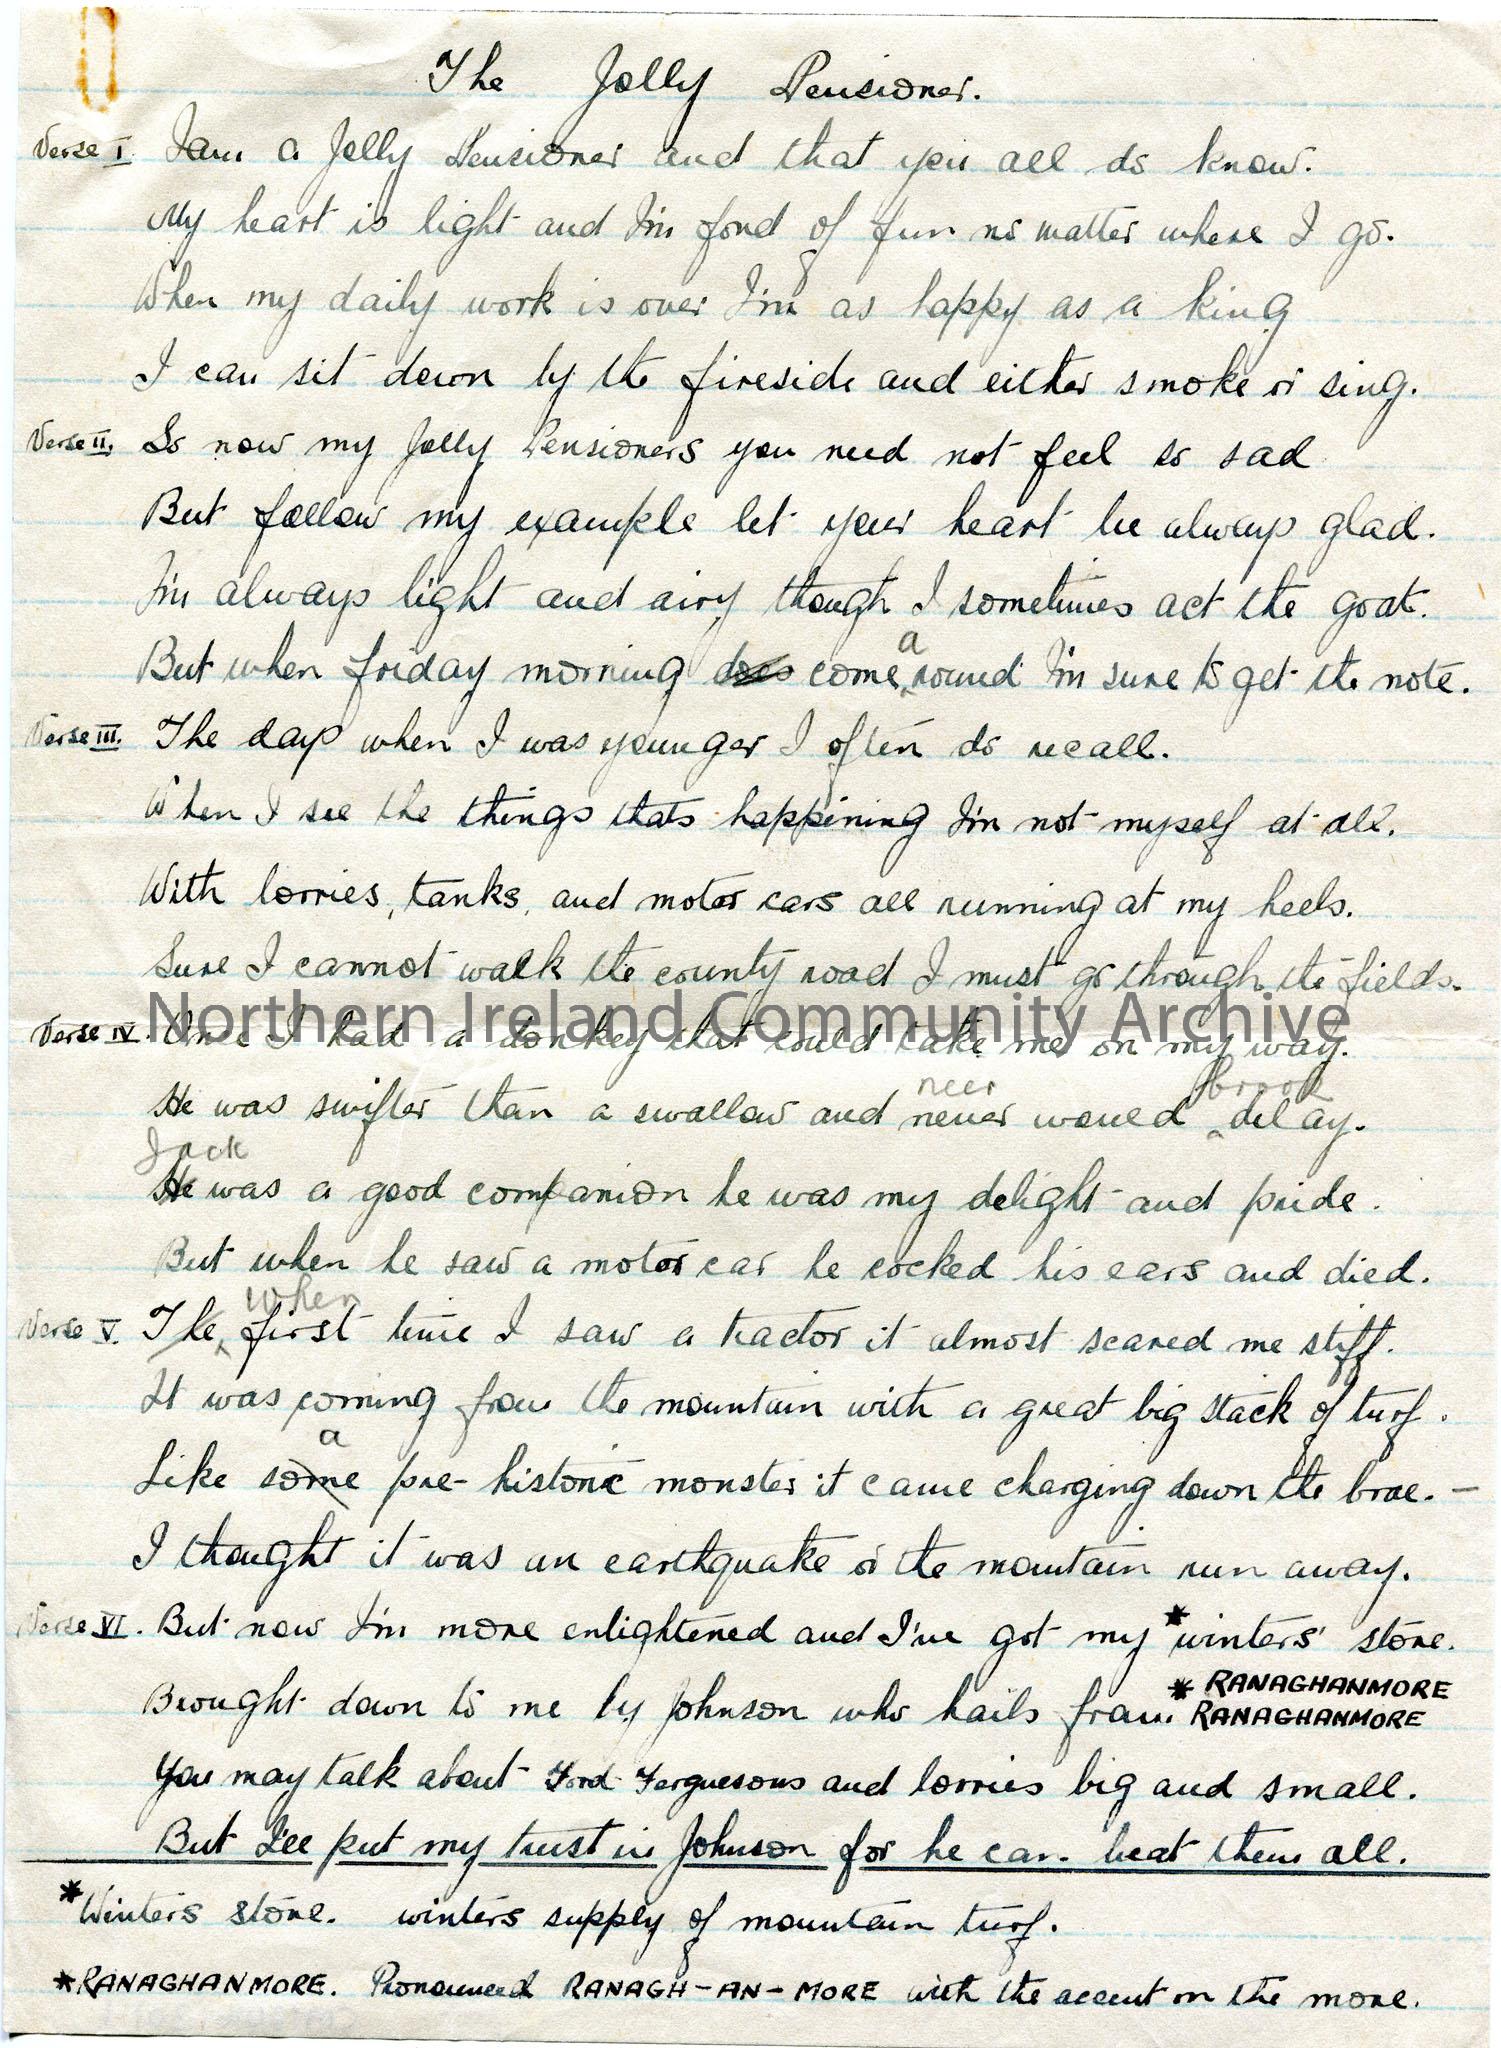 The Jolly Pensioner.
Verse I I am a Jolly Pensioner and that you all do know.
My heart is light and I'm fond of fun no matter where I go.
When my daily work is over I'm as happy as a king
I can sit down by the fireside and either smoke or sing.
Verse II. So now my Jolly Pensioners you need not feel so sad
But follow my example let your heart be always glad.
I'm always light and airy though I sometimes act the goat.
a
But when friday morning does come round I'm sure to get the note.
Verse III. The days when I was younger I often do recall.
When I see the things thats happining I'm not myself at all.
With lorries, tanks, and motor cars all running at my heels.
Sure I cannot walk the county road I must go through the fields.
Northern Ireland Community Archive
Verse IV. Once I had a donkey that could take me on my way.
neer brook
He was swifter than a swallow and never would delay.
Jack
He was a good companion he was my delight and pride.
But when he saw a motor car he cocked his ears and died.
when
Verse V. The first time I saw a tractor it almost scared me stiff.
It was coming from the mountain with a great big stack of turf.
a
Like some pre-historic monster it came charging down the brae. -
I thought it was an earthquake or the mountain run away.
Verse VI. But now I'm more enlightened and I've got my *winters' store.
* RANAGHANMORE
Brought down to me by Johnson who hails from RANAGHANMORE
You may talk about Ford Ferguesons and lorries big and small.
But I'll put my trust in Johnson for he can beat them all.
*Winters store. winters supply of mountain turf.
*RANAGHANMORE. Pronounced RANAGH-AN-MORE with the accent on the more.